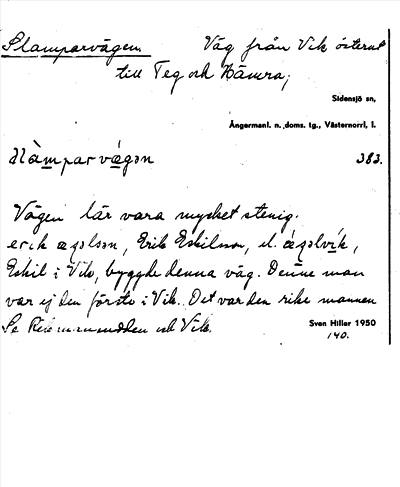 Slamparvägen Väg från Vik österut
till Teg och Hämra;
Sidensjö sn,
Ångermanl. n. doms. tg., Västernorrl. l.
383.
Vägen lär vara mycket stenig.
Erik Eskilsson, el.
Eskil i Vik, byggde denna väg. Denne man
var ej den förste i Vik. Det var den rike mannen
Se och Vik.
Sven Hiller 1950
140.